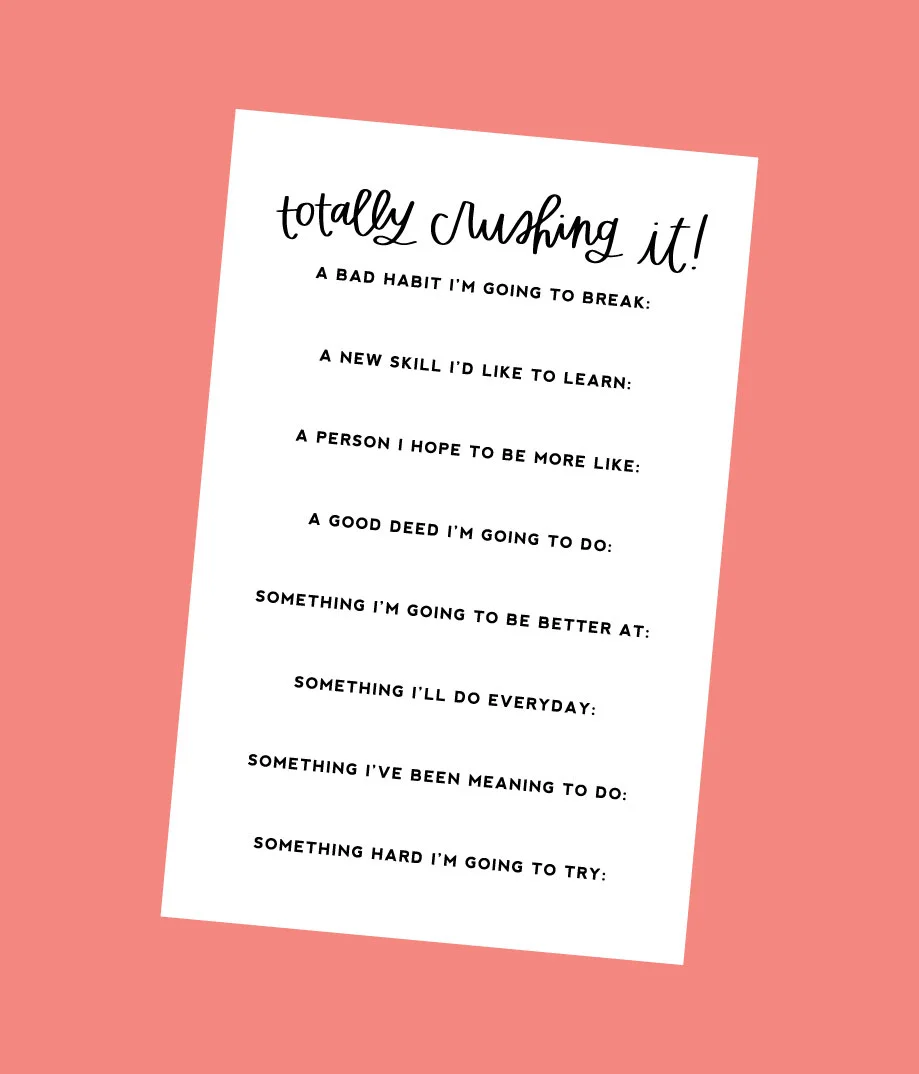 totally crushing it!
A BAD HABIT I'M GOING TO BREAK:
A NEW SKILL I'D LIKE TO LEARN:
A PERSON I HOPE TO BE MORE LIKE:
A GOOD DEED I'M GOING TO DO:
SOMETHING I'M GOING TO BE BETTER AT:
SOMETHING I'LL DO EVERYDAY:
SOMETHING I'VE BEEN MEANING TO DO:
SOMETHING HARD I'M GOING TO TRY: